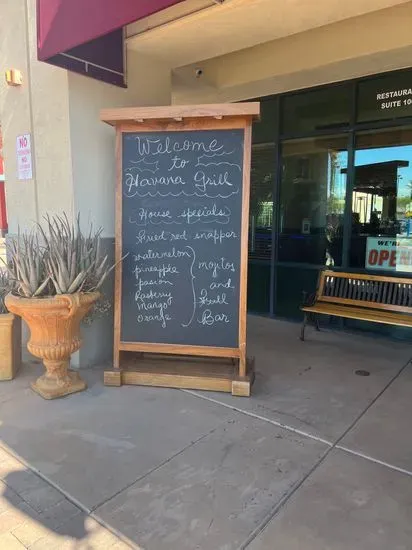 Havana Grill
NO
RESTAURA
SUITE 10
Welcome
to
Havana Grill
House specials
Fried red snapper
watermelon
pineapple
pasion
Rasberry
mango
orange
mojitos
and
Full
Bar
WE'RE
OPE